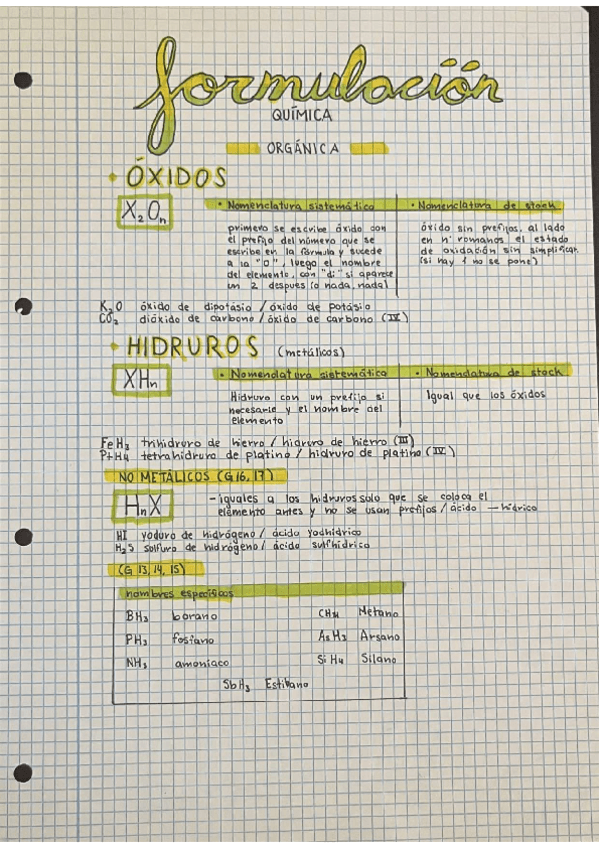 formulación
QUÍMICA
ORGÁNICA
• ÓXIDOS
X₂Oₙ
• Nomenclatura sistemática
primero se escribe óxido con
el prefijo del número que se
escribe en la fórmula y sucede
a la "O", luego el nombre
del elemento, con "di" si aparece
un 2 despues (o nada, nada)
• Nomenclatura de stock
óxido sin prefijos, al lado
en nº romanos el estado
de oxidación sin simplificar
(si hay 1 no se pone)
K₂O óxido de dipotásio / óxido de potásio
CO₂ dióxido de carbono / óxido de carbono (IV)
• HIDRUROS (metálicos)
XHₙ
• Nomenclatura sistemática
Hidruro con un prefijo si
necesario y el nombre del
elemento
• Nomenclatura de stock
Igual que los óxidos
FeH₃ trihidruro de hierro / hidruro de hierro (III)
PtH₄ tetrahidruro de platino / hidruro de platino (IV)
NO METÁLICOS (G16, 17)
HₙX
- iguales a los hidruros solo que se coloca el
elemento antes y no se usan prefijos / ácido — hídrico
HI yoduro de hidrógeno / ácido yodhídrico
H₂S solfuro de hidrógeno / ácido sulfhídrico
(G 13, 14, 15)
nombres específicos
BH₃ borano
CH₄ Metano
PH₃ fosfano
AsH₃ Arsano
NH₃ amoniaco
SiH₄ Silano
SbH₃ Estibano